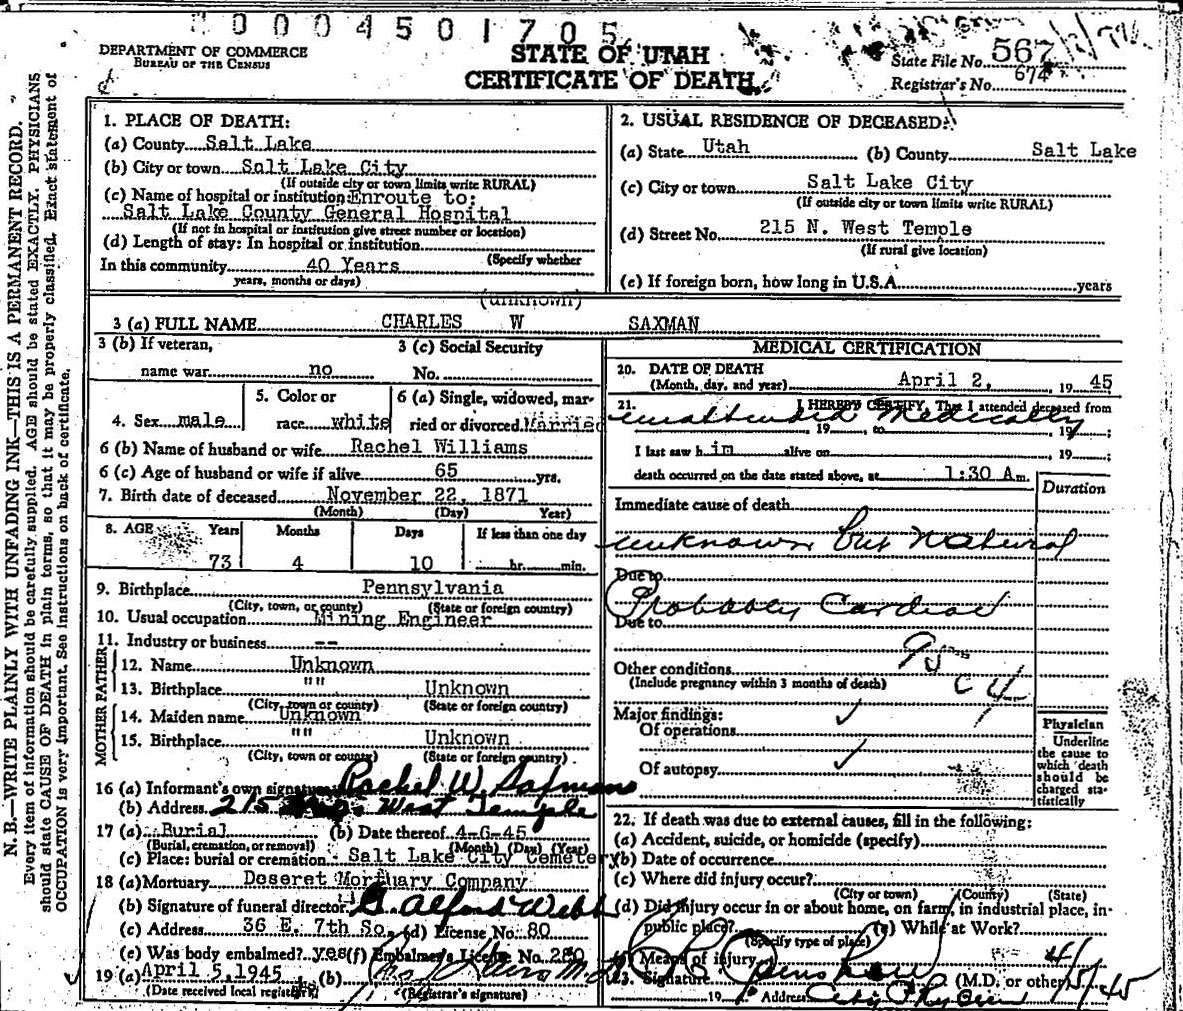 0004501705
DEPARTMENT OF COMMERCE
BUREAU OF THE CENSUS
STATE OF UTAH
CERTIFICATE OF DEATH
State File No. 567
Registrar's No. 674
N. B.—WRITE PLAINLY WITH UNFADING INK—THIS IS A PERMANENT RECORD.
Every item of information should be carefully supplied. AGE should be stated EXACTLY. PHYSICIANS
should state CAUSE OF DEATH in plain terms, so that it may be properly classified. Exact statement of
OCCUPATION is very important. See instructions on back of certificate.
1. PLACE OF DEATH:
(a) County Salt Lake
(b) City or town Salt Lake City
(If outside city or town limits write RURAL)
(c) Name of hospital or institution: Enroute to:
Salt Lake County General Hospital
(If not in hospital or institution give street number or location)
(d) Length of stay: In hospital or institution
(Specify whether
In this community 40 Years
years, months or days)
2. USUAL RESIDENCE OF DECEASED:
(a) State Utah (b) County Salt Lake
(c) City or town Salt Lake City
(If outside city or town limits write RURAL)
(d) Street No. 215 N. West Temple
(If rural give location)
(e) If foreign born, how long in U.S.A. years
(unknown)
3 (a) FULL NAME CHARLES W SAXMAN
3 (b) If veteran,
name war no
3 (c) Social Security
No.
4. Sex male
5. Color or
race white
6 (a) Single, widowed, mar-
ried or divorced Married
6 (b) Name of husband or wife Rachel Williams
6 (c) Age of husband or wife if alive 65 yrs.
7. Birth date of deceased November 22, 1871
(Month) (Day) Year)
8. AGE Years Months Days If less than one day
73 4 10 hr. min.
9. Birthplace Pennsylvania
(City, town, or county) (State or foreign country)
10. Usual occupation Mining Engineer
11. Industry or business --
FATHER
12. Name Unknown
13. Birthplace "" Unknown
(City, town or county) (State or foreign country)
MOTHER
14. Maiden name Unknown
15. Birthplace "" Unknown
(City, town or county) (State or foreign country)
16 (a) Informant's own signature Rachel W. Saxman
(b) Address 215 No. West Temple
17 (a) Burial (b) Date thereof 4-6-45
(Burial, cremation, or removal) (Month) (Day) (Year)
(c) Place: burial or cremation Salt Lake City Cemetery
18 (a) Mortuary Deseret Mortuary Company
(b) Signature of funeral director Alford Webb
(c) Address 36 E. 7th So. (d) License No. 80
(e) Was body embalmed? yes (f) Embalmer's License No. 280
19 (a) April 5, 1945 (b)
(Date received local registrar) (Registrar's signature)
MEDICAL CERTIFICATION
20. DATE OF DEATH
(Month, day, and year) April 2, , 19 45
21. I HEREBY CERTIFY, That I attended deceased from
unattended Medically
, 19 , to , 19 ;
I last saw h im alive on , 19 ;
death occurred on the date stated above, at 1:30 A m.
Duration
Immediate cause of death
unknown but natural
Due to
Probably Cardiac
Due to
Other conditions
(Include pregnancy within 3 months of death)
Major findings:
Of operations
Of autopsy
Physician
Underline
the cause to
which death
should be
charged sta-
tistically
22. If death was due to external causes, fill in the following:
(a) Accident, suicide, or homicide (specify)
(b) Date of occurrence
(c) Where did injury occur?
(City or town) (County) (State)
(d) Did injury occur in or about home, on farm, in industrial place, in-
public place? (e) While at Work?
(Specify type of place)
Means of injury
23. Signature (M.D. or other) 4/5/45
19 Address City Physician